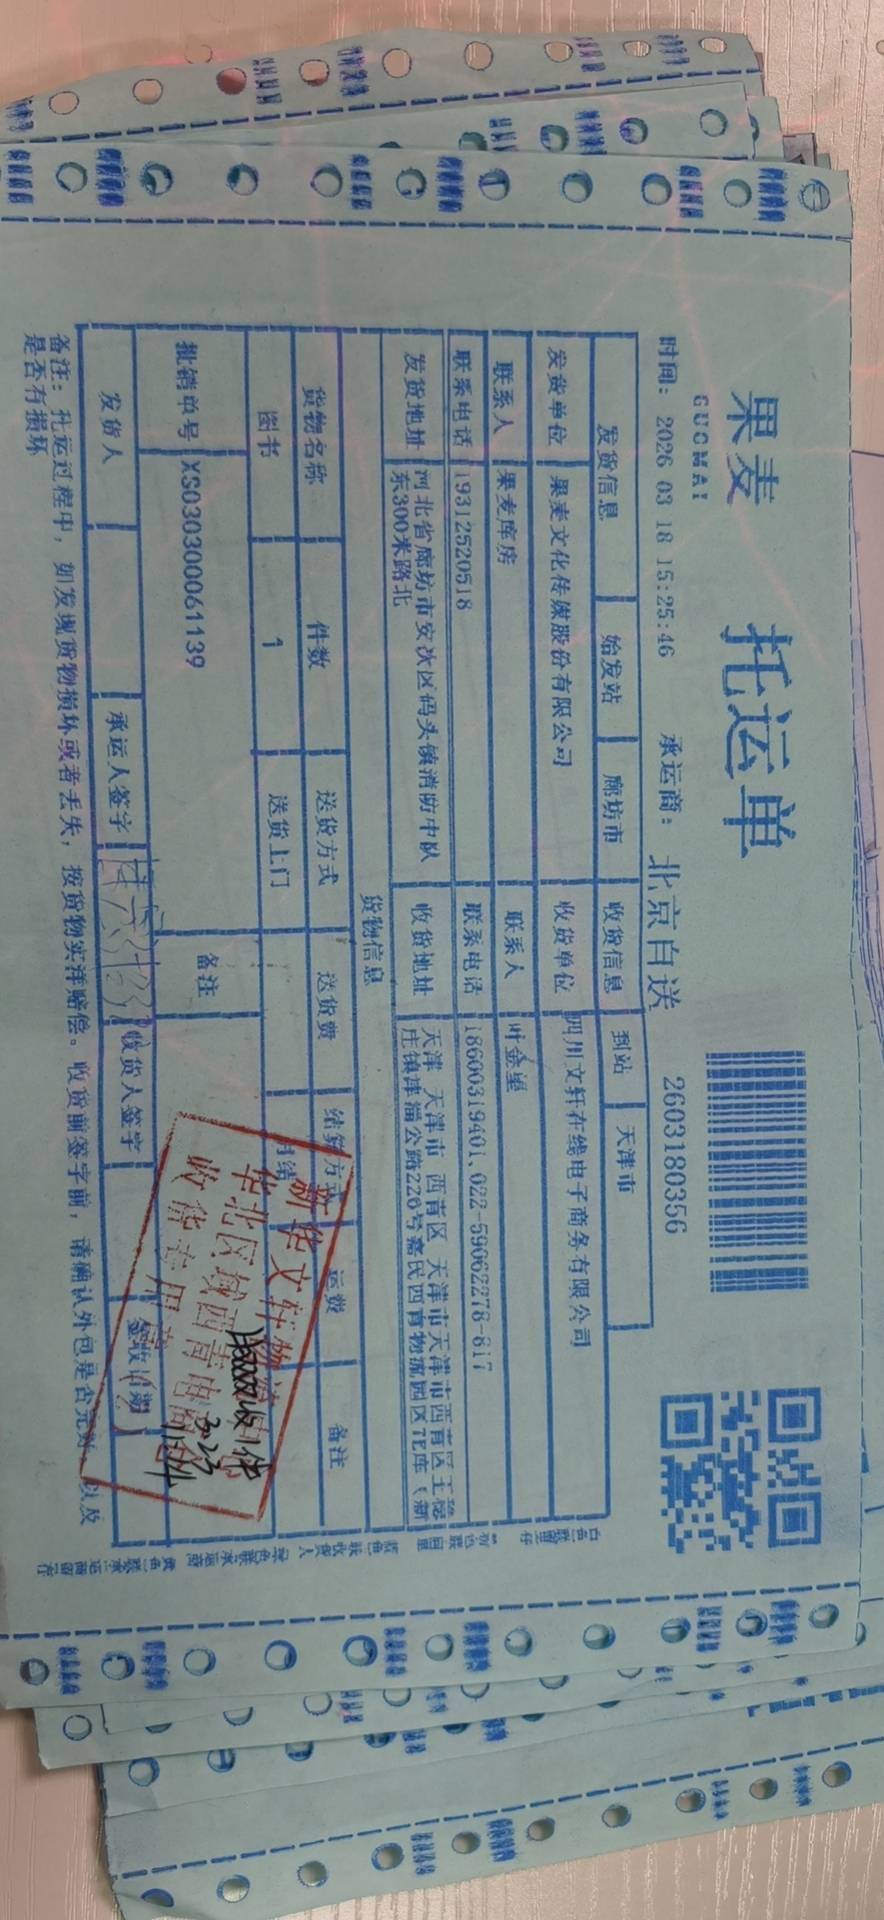 果麦 托运单
GUOMAI
2603180356
时间: 2026 03 18 15:25:46 承运商: 北京自送
发货信息 始发站 廊坊市 收货信息 到站 天津市
发货单位 果麦文化传媒股份有限公司 收货单位 四川文轩在线电子商务有限公司
联系人 果麦库房 联系人 叶金望
联系电话 19312520518 联系电话 18600319401,022-59062278-817
发货地址 河北省廊坊市安次区码头镇消防中队
东300米路北
收货地址 天津 天津市 西青区 天津市天津市西青区王稳
庄镇津淄公路226号嘉民西青物流园区7E库（新
货物信息
货物名称 件数 送货方式 送货费 结算方式 运费 备注
图书 1 送货上门 月结
批销单号 XS030300061139 备注
发货人 承运人签字 收货人签字 签收日期
备注: 托运过程中，如发现货物损坏或者丢失，按货物实洋赔偿。收货前签字前，请确认外包是否完好，以及
是否有损坏
新华文轩物流
华北区域西青电商仓
收货专用章
(2)
3.23